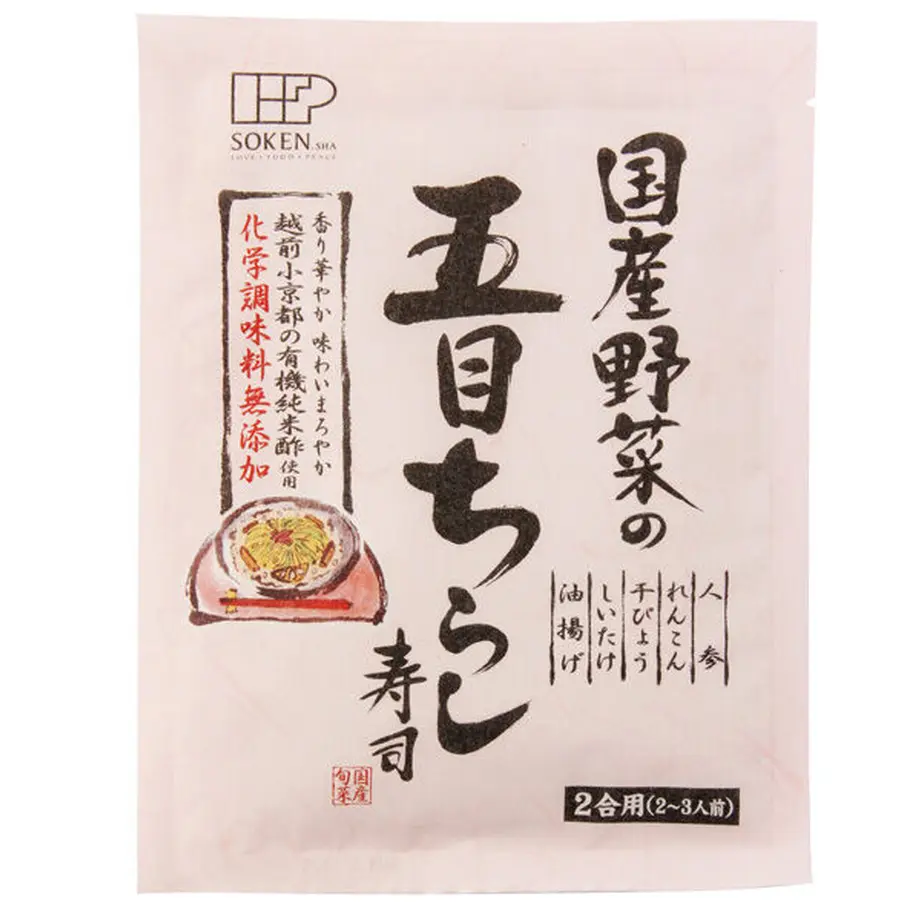 SOKEN.SHA
LOVE・FOOD・PEACE
国産野菜の
五目ちらし
寿司
香り華やか 味わいまろやか
越前小京都の有機純米酢使用
化学調味料無添加
人参
れんこん
干びょう
しいたけ
油揚げ
国産
旬菜
2合用(2～3人前)